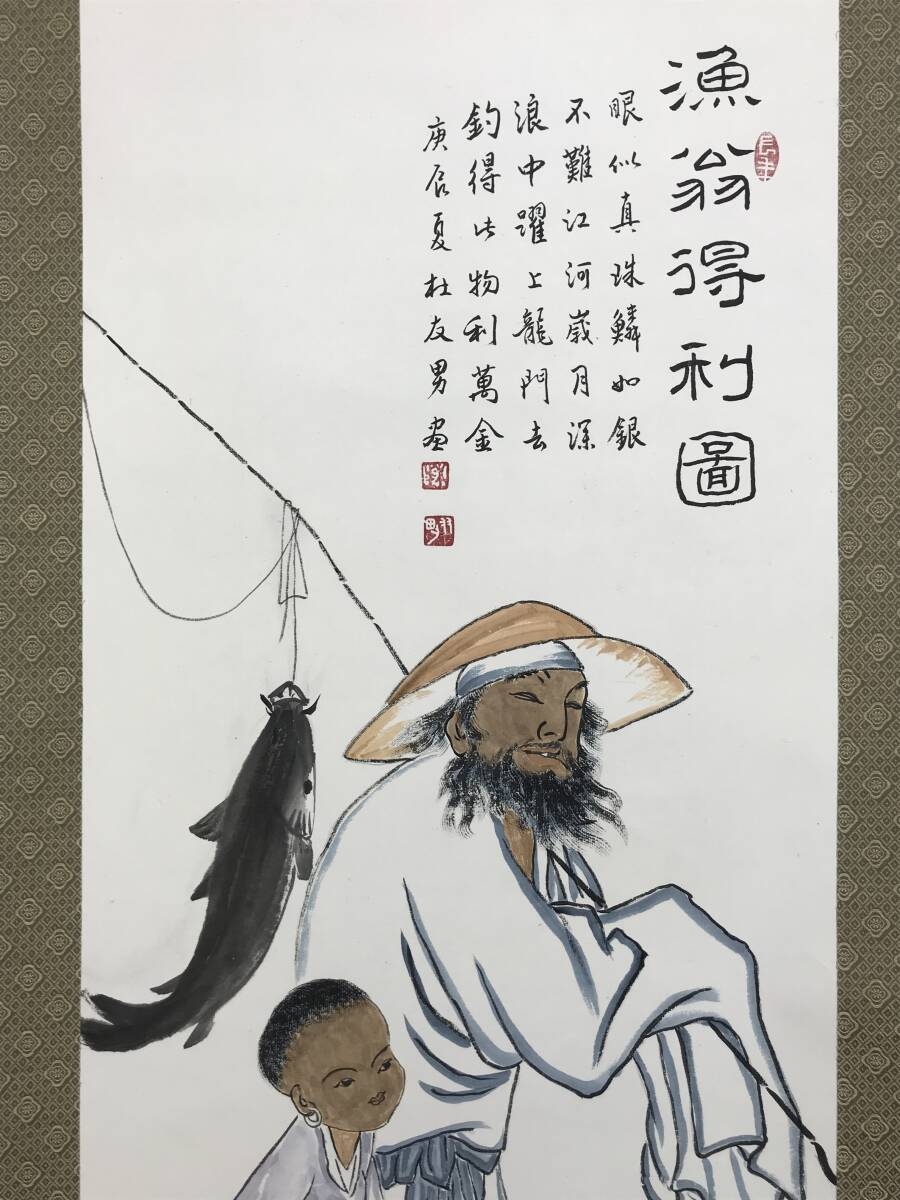 漁翁得利圖
眼似真珠鱗如銀
不難江河歲月深
浪中躍上龍門去
釣得此物利萬金
庚辰夏杜友男画
長年